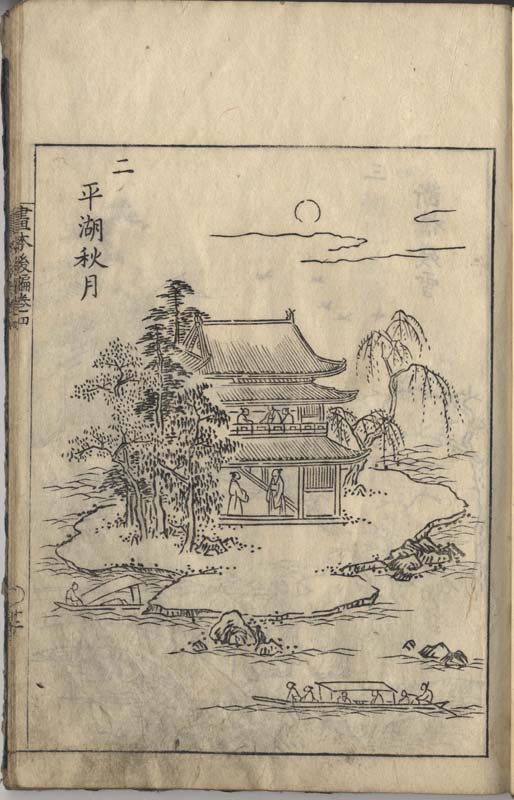 二
平湖秋月
畫本後編卷四